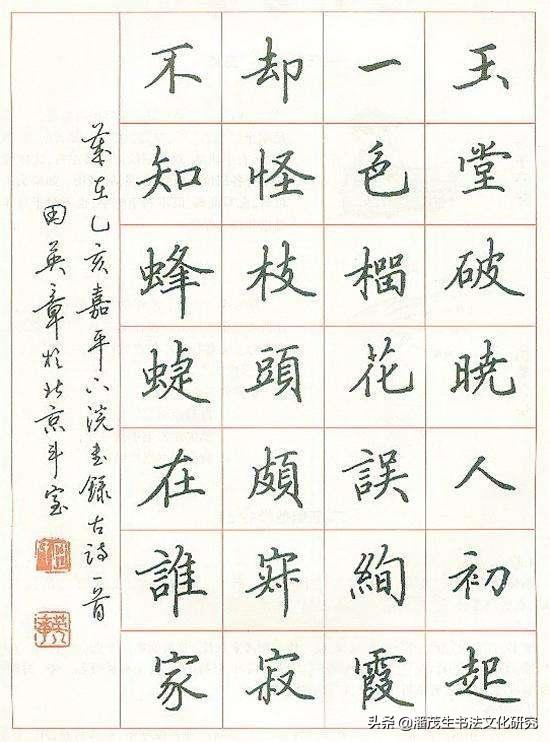 玉堂破暁人初起
一色榴花誤絢霞
却怪枝頭頗寂寂
不知蜂蝶在誰家
歲在乙亥嘉平下浣書錄古詩一首
田英章於北京斗室
头条 @潘茂生书法文化研究